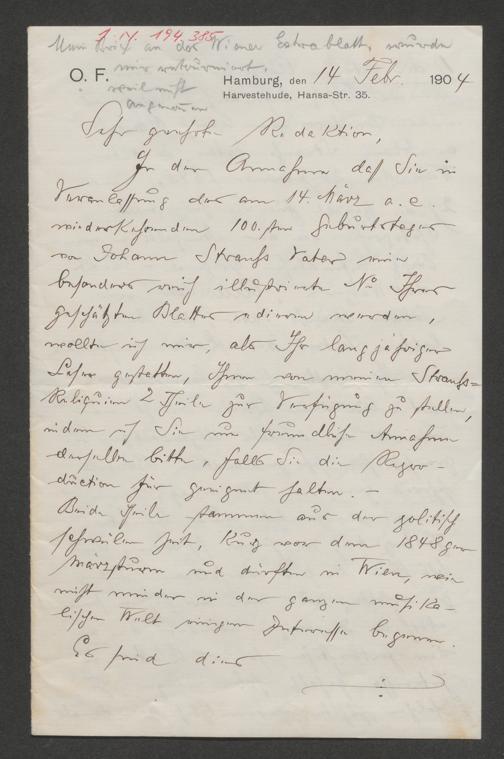 1. IV. 194.385
Mein Brief an das Wiener Extrablatt, wurde
mir retourniert,
weil nicht
angenommen
O. F.
Hamburg, den 14 Febr. 1904
Harvestehude, Hansa-Str. 35.
Sehr geehrte Redaktion,
In der Annahme daß Sie in
Veranlassung des am 14. März a. c.
wiederkehrenden 100.sten Geburtstages
von Johann Strauss Vater eine
besonders reich illustrierte No Ihres
geschätzten Blattes edieren werden,
wollte ich mir, als Ihr langjähriger
Leser gestatten, Ihnen von meinen Strauss=
Reliquien 2 Theile zur Verfügung zu stellen,
indem ich Sie um freundliche Annahme
derselben bitte, falls Sie die Repro-
duction für geeignet halten. —
Beide Theile stammen aus der politisch
schwülen Zeit, kurz vor dem 1848ger
Märzsturm und dürften in Wien, wie
nicht minder in der ganzen musika-
lischen Welt einigem Interesse begegnen.
Es sind dies